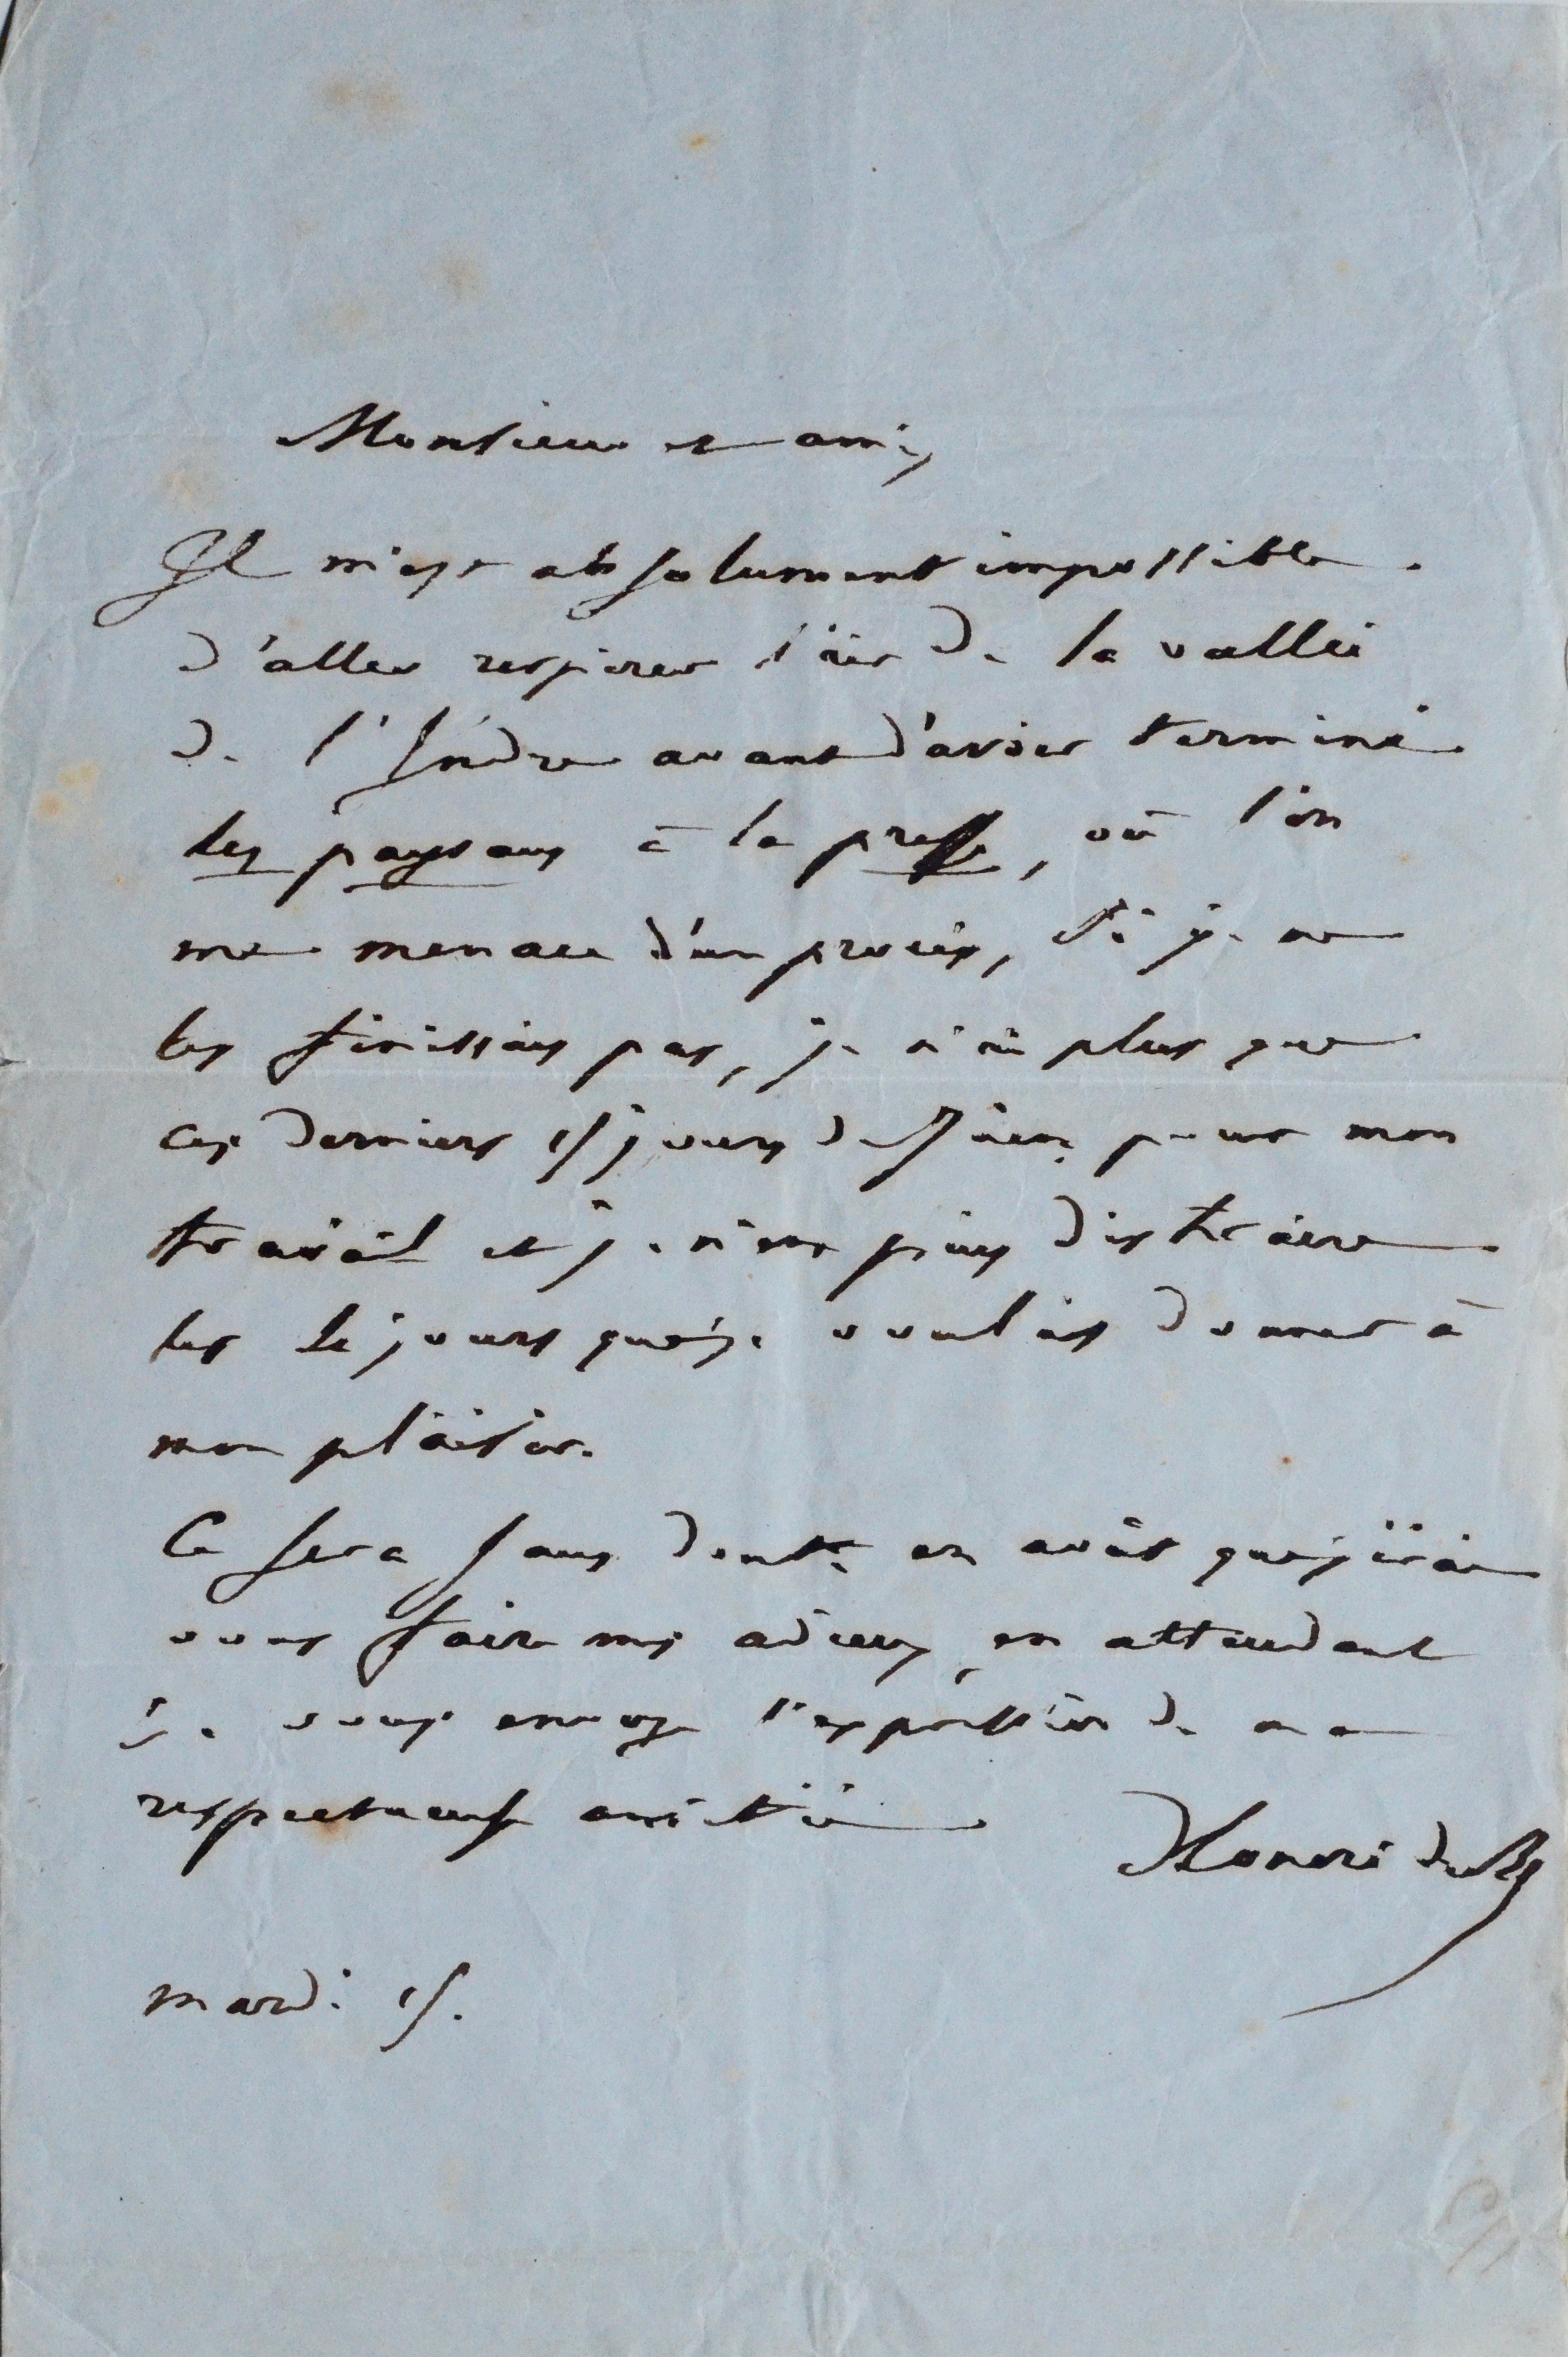 Monsieur et ami,
Il m'est absolument impossible
d'aller respirer l'air de la vallée
de l'Indre avant d'avoir terminé
les paysans à la presse, où l'on
me menace d'un procès, si je ne
les finissais pas, je n'ai plus que
ces derniers 15 jours de juin pour mon
travail et je n'en puis distraire
les jours que je voulais donner à
mon plaisir.
Ce sera sans doute en août que j'irai
vous faire mes adieux, en attendant
je vous envoye l'expression de ma
respectueuse amitié
Honoré de B
mardi 15.